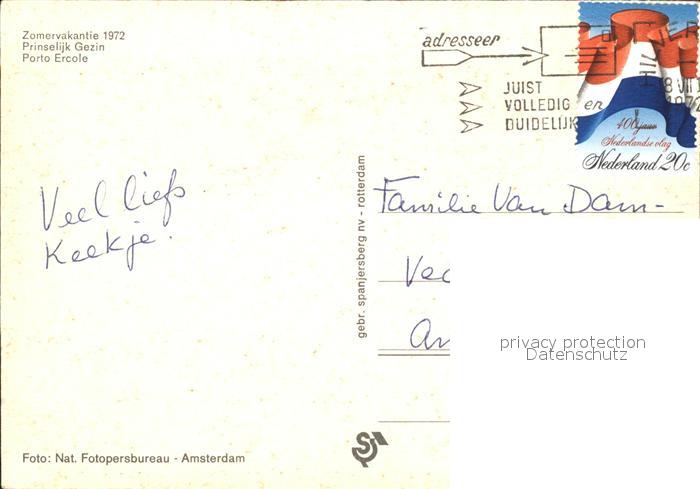 Zomervakantie 1972
Prinselijk Gezin
Porto Ercole
adresseer
JUIST
VOLLEDIG en
DUIDELIJK
400 jaar
Nederlandse vlag
Nederland 20c
Veel liefs
Keekje.
gebr. spanjersberg nv - rotterdam
Familie Van Dam-
privacy protection
Datenschutz
Foto: Nat. Fotopersbureau - Amsterdam